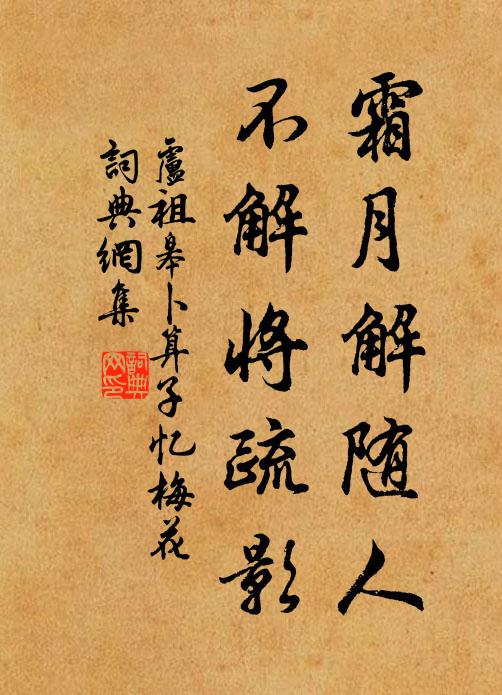 霜月解随人
不解将疏影
盧祖皋卜算子忆梅花
詞典網集
詞典网印